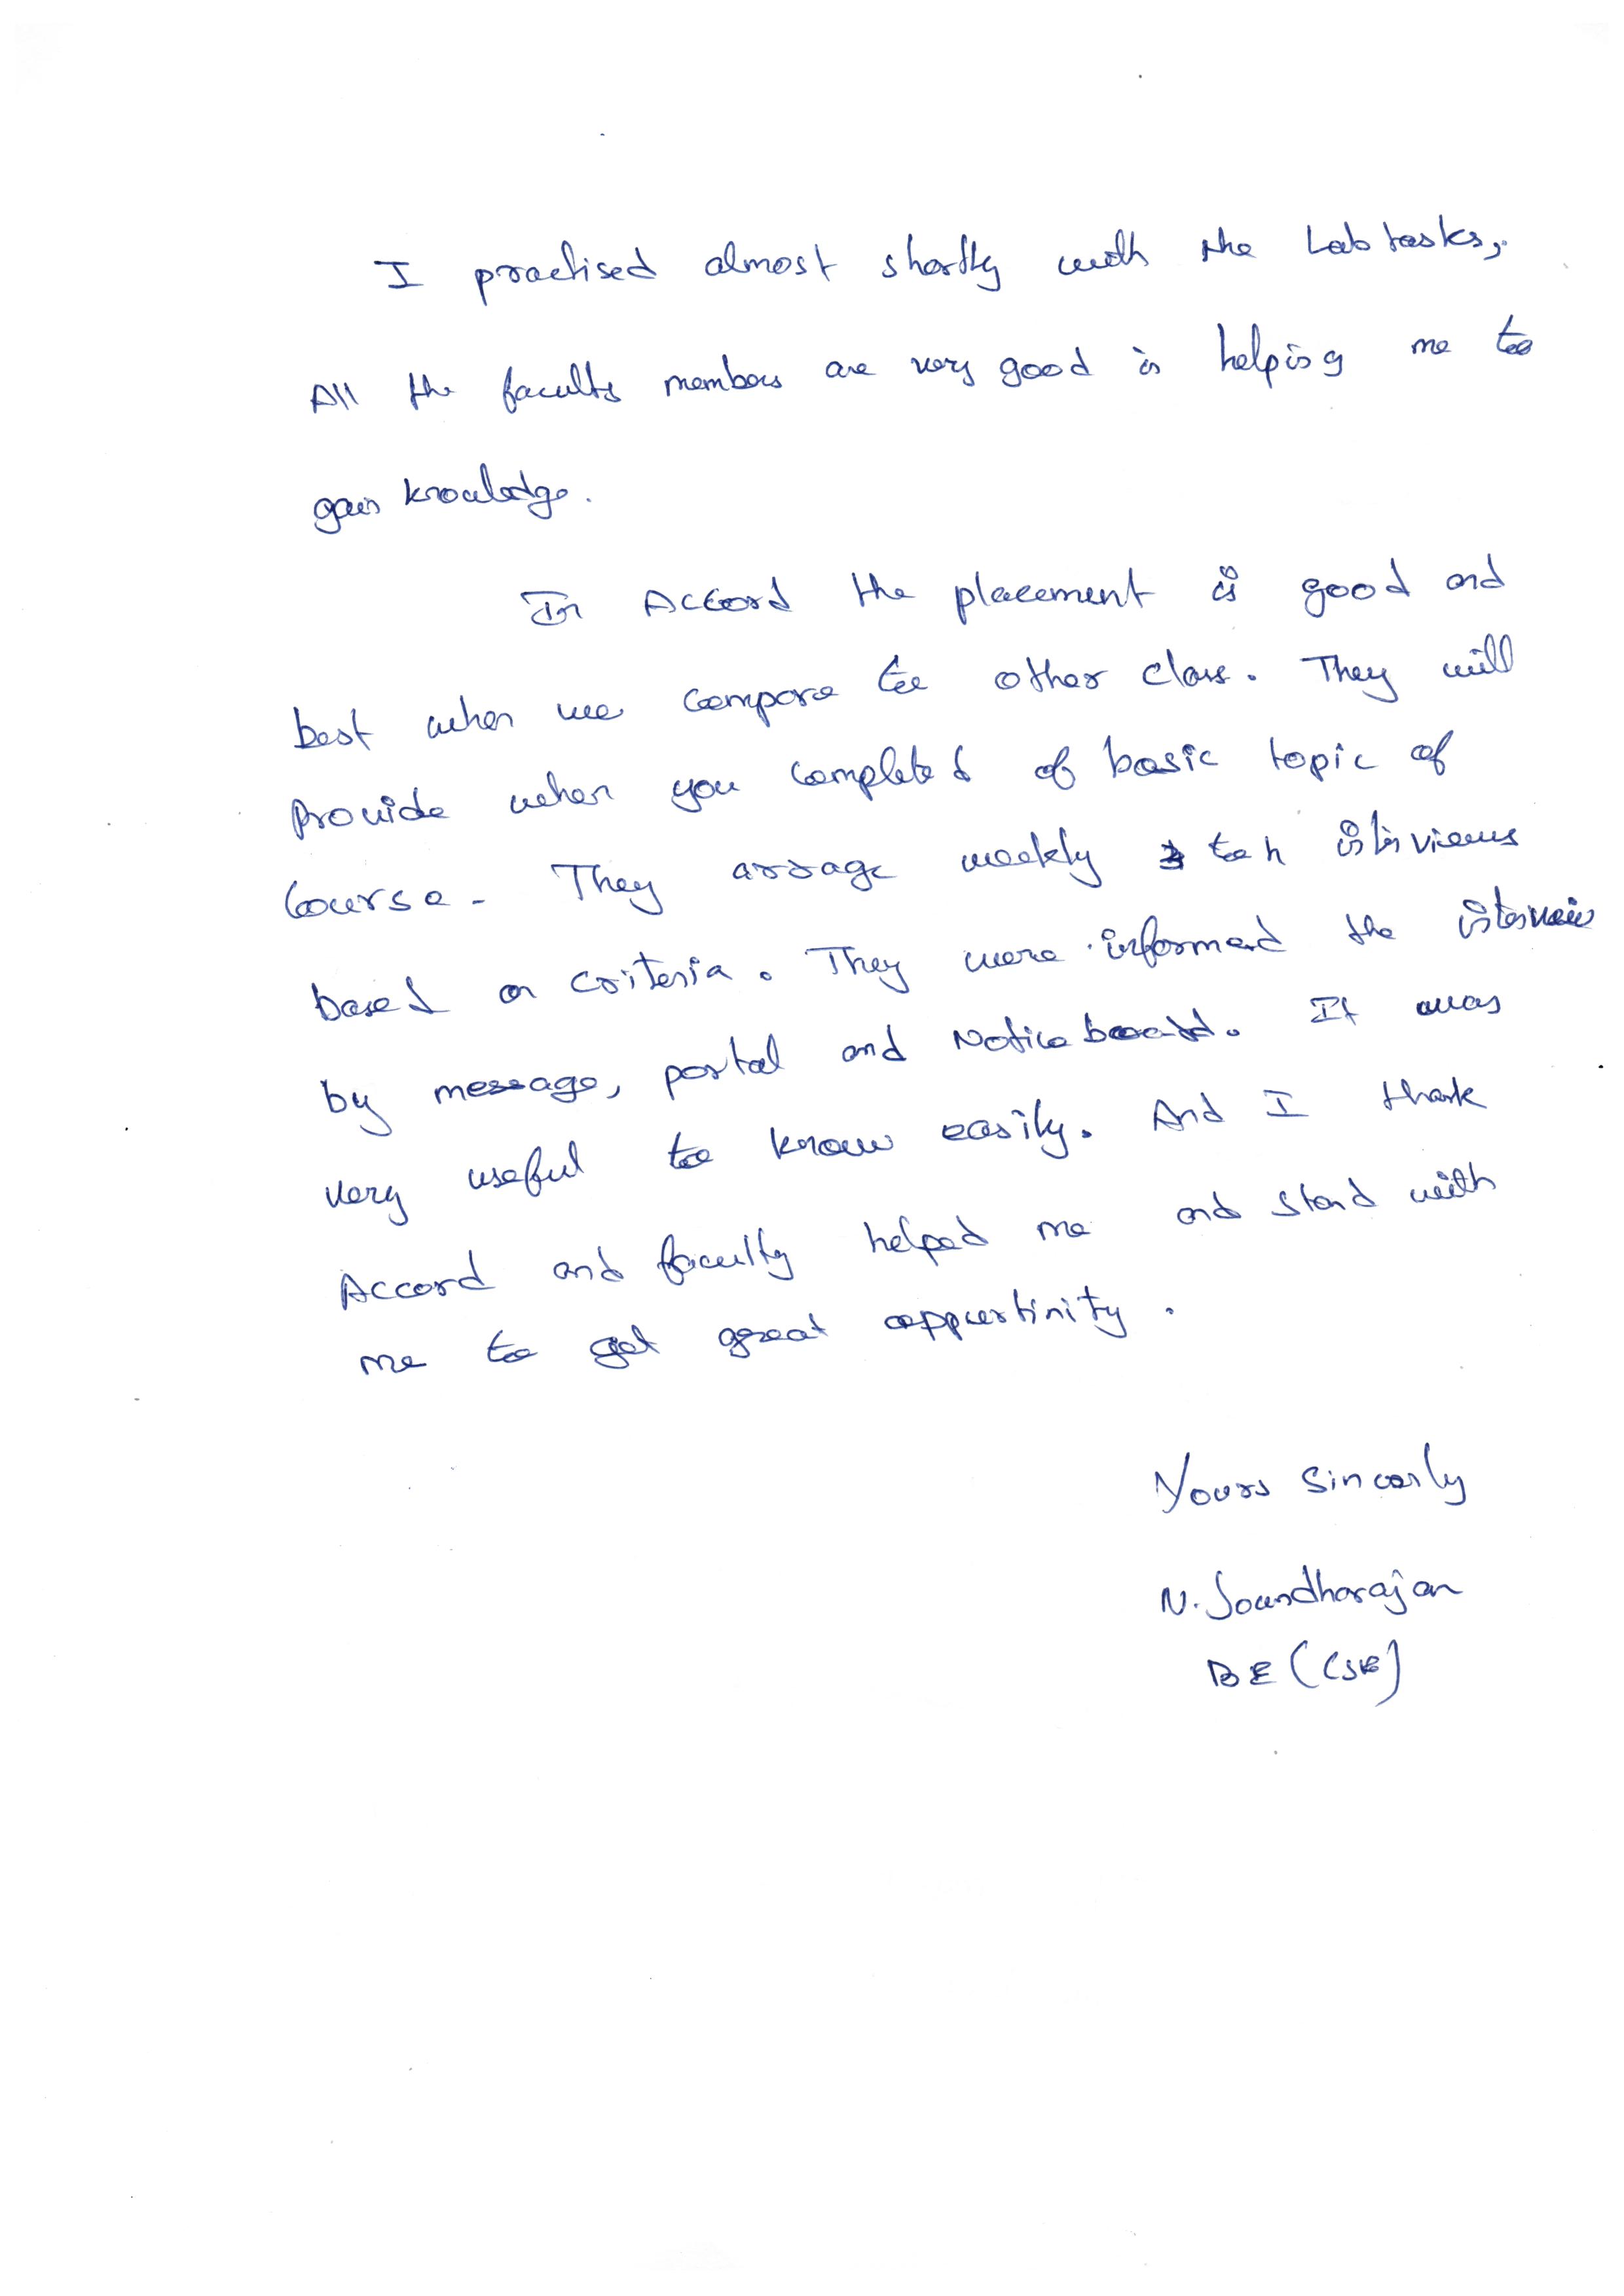 I practised almost shortly with the Lab tasks,
All the faculty members are very good in helping me to
gain knowledge.
In Accord the placement is good and
best when we compare to other class. They will
provide when you completed of basic topic of
course. They arrage weekly interviews
based on criteria. They were informed the
by message, portal and Notice board. It was
very useful to know easily. And I thank
Accord and faculty helped me and stand with
me to get great oppurtinity.
Yours Sincerly
N. Soundharajan
BE (CSE)